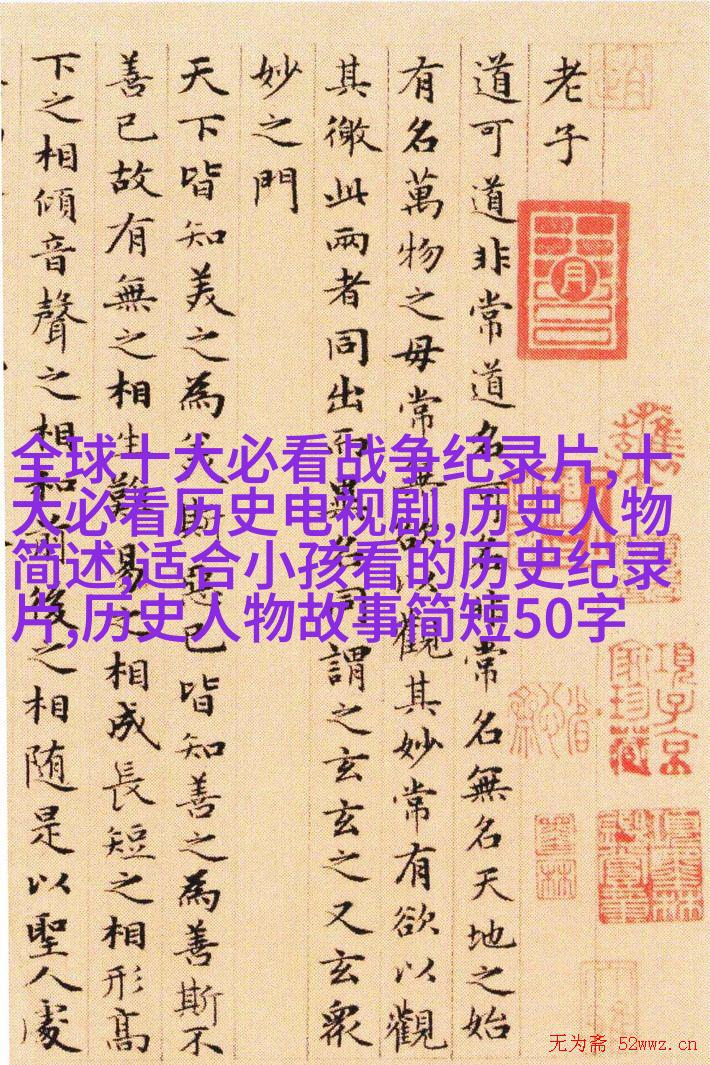 老子
道可道非常道名可名非常名無名天地之始
有名萬物之母常無欲以觀其妙常有欲以觀
其徼此兩者同出而異名同謂之玄玄之又玄眾
妙之門
天下皆知美之為美斯惡已皆知善之為善斯不
善已故有無之相生難易之相成長短之相形高
下之相傾音聲之相和前後之相随是以聖人處
全球十大必看战争纪录片,十
大必看历史电视剧,历史人物
简述,适合小孩看的历史纪录
片,历史人物故事简短50字
項子京
家珍藏
无为斋 52wwz.cn